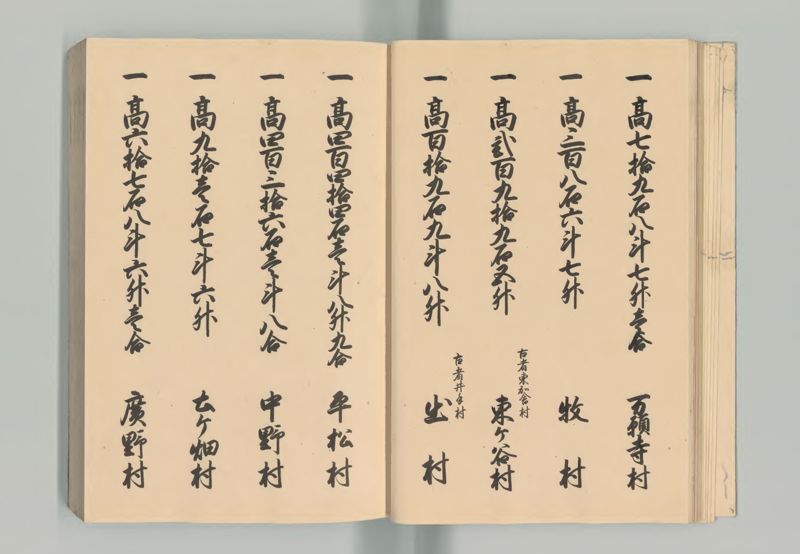 一 高七拾九石八斗七升壱合 万願寺村
一 高三百八石六斗七升 牧村
一 高弐百九拾九石五升 古者東加舎村 東ケ谷村
一 高百拾九石九斗八升 古者井手村 出村
一 高四百四拾四石壱斗八升九合 平松村
一 高四百三拾六石壱斗八合 中野村
一 高九拾壱石七斗六升 ケ畑村
一 高六拾七石八斗六升壱合 廣野村